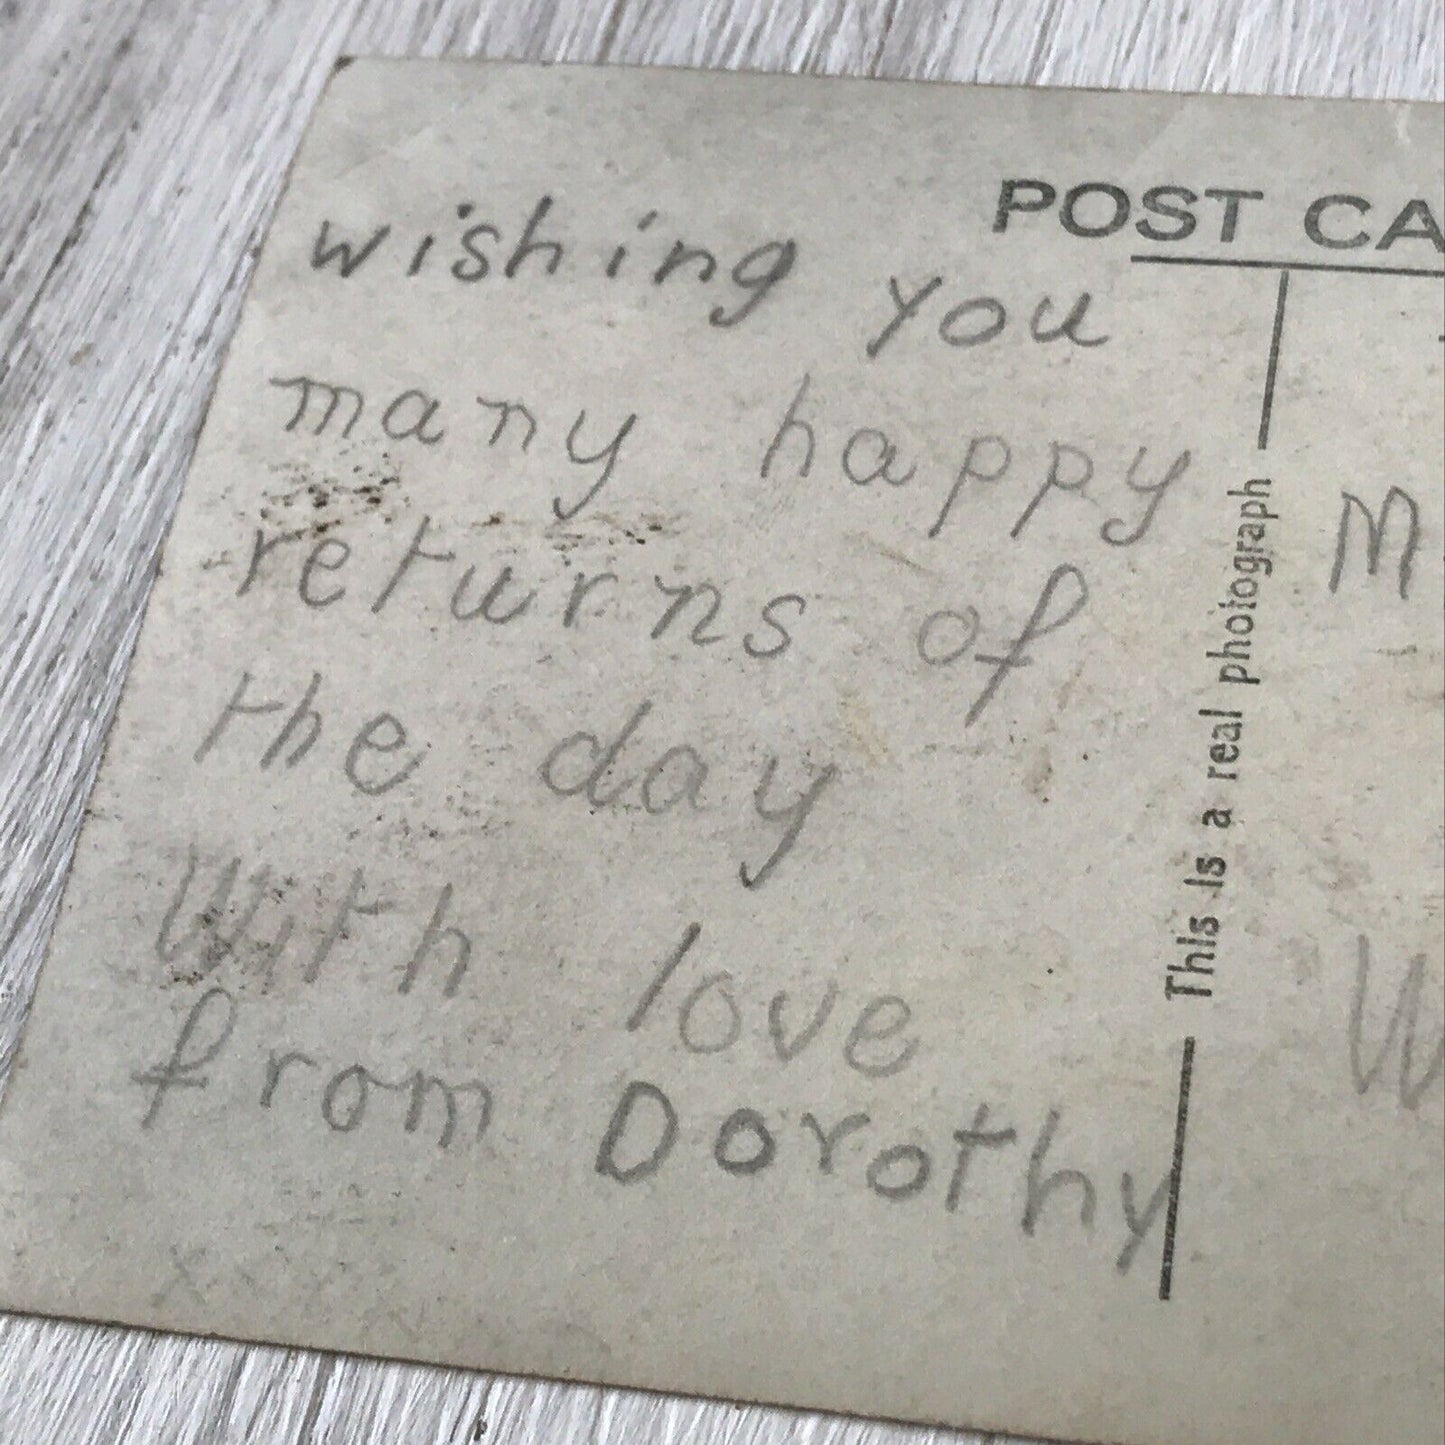 POST CA
wishing you
many happy
returns of
the day
With love
from Dorothy
This is a real photograph
M
W